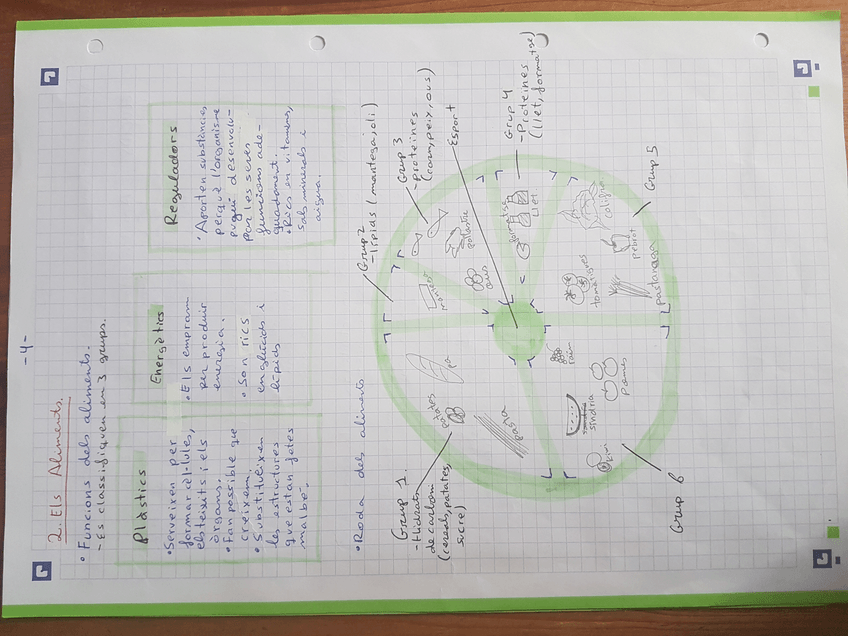 -4-
2. Els Aliments.
• Funcions dels aliments.
- Es classifiquen en 3 grups.
Plàstics
• Serveixen per
formar cèl·lules,
els teixits i els
òrgans.
• Fan possible que
creixem.
• Substitueixen
les estructures
que estan fetes
malbé.
Energètics
• Els empram
per produir
energia.
• Son rics
en glúcids i
lípids
Reguladors
• Aporten substàncies
perquè l'organisme
pugui desenvolu-
par les seves
funcions ade-
quadament.
• Rics en vitamines,
sals minerals i
aigua.
• Roda dels aliments
Grup 1.
- Hidrats
de carboni
(cereals, patates,
sucre)
Grup 2
- lípids (mantega, oli)
Grup 3
- proteïnes
(carn, peix, ous)
Esport
Grup 4
- Proteïnes
(llet, formatge)
Grup 5
Grup 6
patates
pa
pasta
pollastre
ous
formatge
llet
tomatigues
pebrot
pastanaga
raïm
síndria
Pomes
kiwi